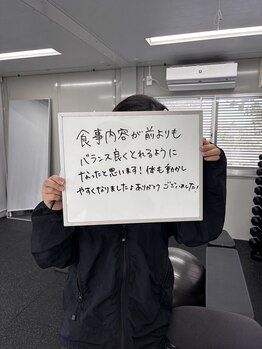 食事内容が前よりも
バランス良くとれるように
なったと思います！体も動かし
やすくなりました♪ありがとうございました！